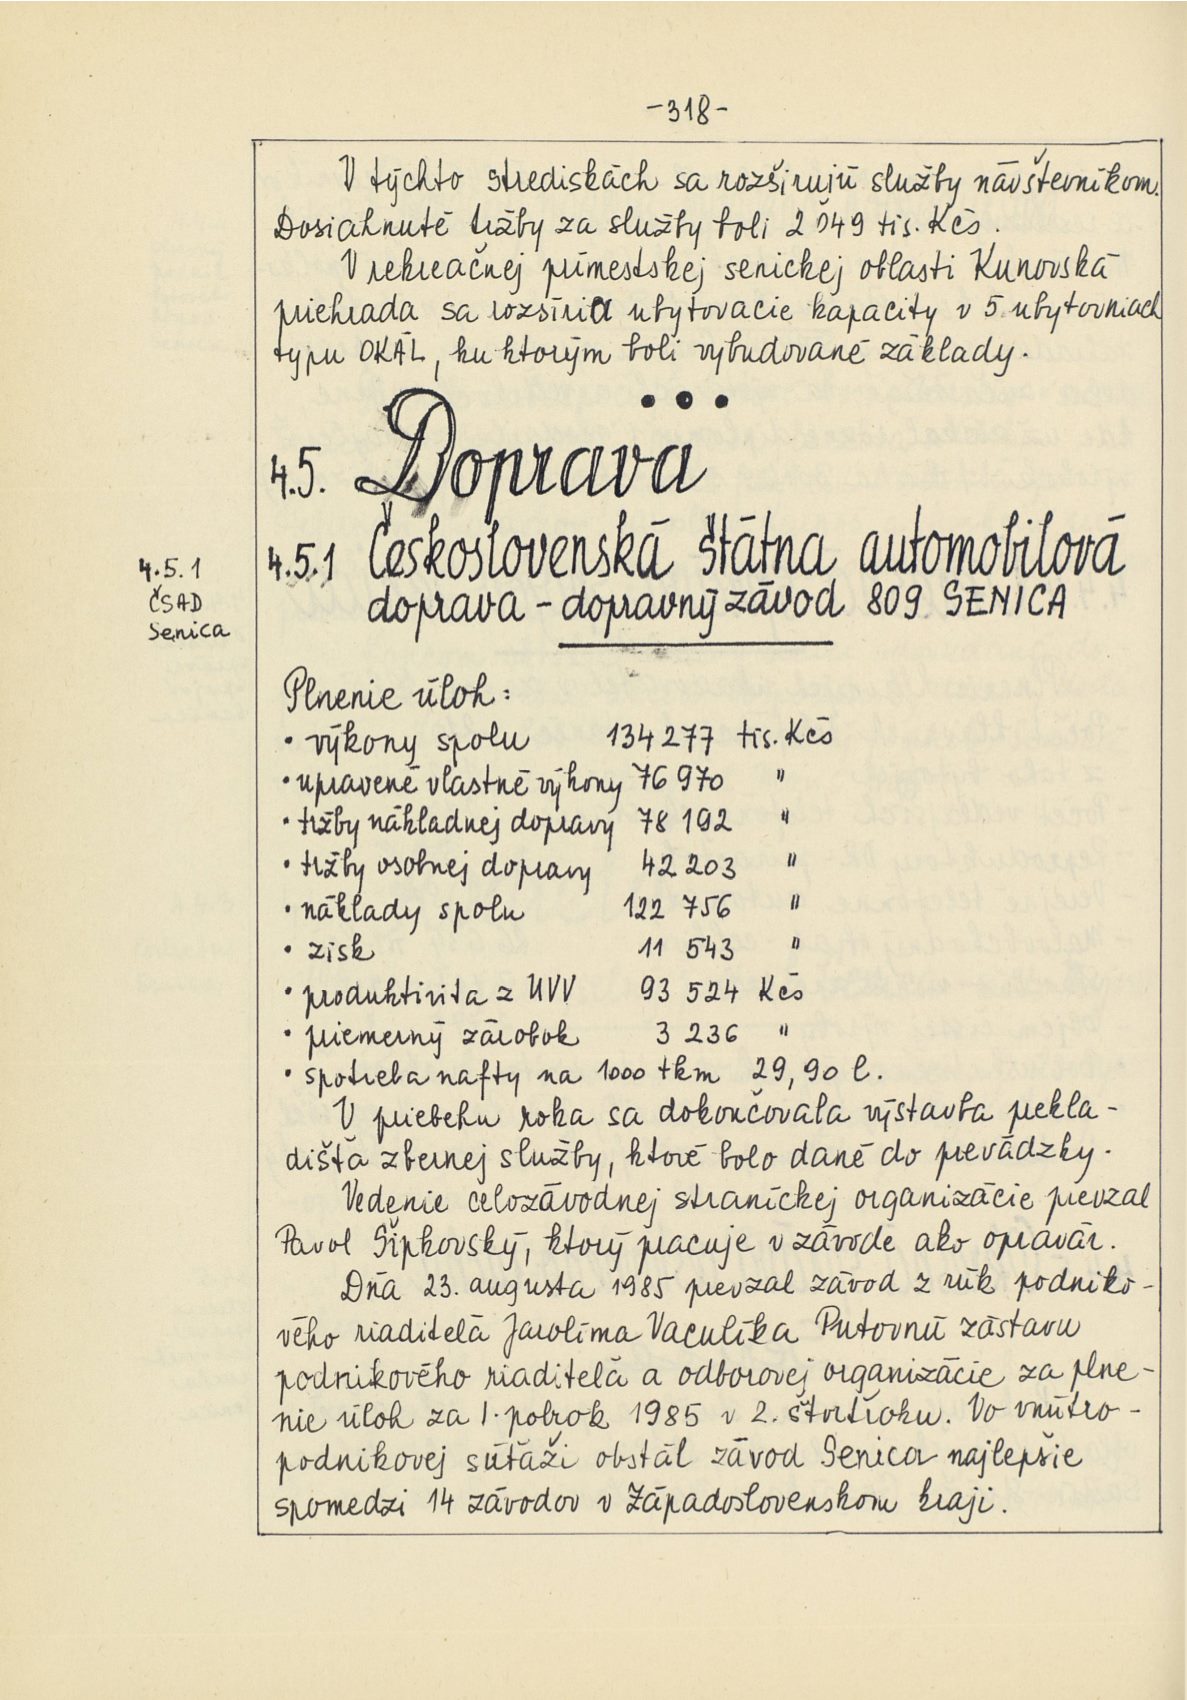 -318-
V týchto strediskách sa rozširujú služby návštevníkom.
Dosiahnuté tržby za služby boli 2 049 tis. Kčs.
V rekreačnej prímestskej senickej oblasti Kunovská
priehrada sa rozšíria ubytovacie kapacity v 5 ubytovniach
typu OKÁL, ku ktorým boli vybudované základy.
• • •
4.5. Doprava
4.5.1 Československá štátna automobilová
doprava - dopravný závod 809 SENICA
4.5.1
ČSAD
Senica
Plnenie úloh:
• výkony spolu 134 277 tis. Kčs
• upravené vlastné výkony 76 970 "
• tržby nákladnej dopravy 78 192 "
• tržby osobnej dopravy 42 203 "
• náklady spolu 122 756 "
• zisk 11 543 "
• produktivita z UVV 93 524 Kčs
• priemerný zárobok 3 236 "
• spotreba nafty na 1000 tkm 29,90 l.
V priebehu roka sa dokončovala výstavba prekla-
dišťa zbernej služby, ktoré bolo dané do prevádzky.
Vedenie celozávodnej straníckej organizácie prevzal
Pavol Šípkovský, ktorý pracuje v závode ako opravár.
Dňa 23. augusta 1985 prevzal závod z rúk podniko-
vého riaditeľa Jarolíma Vaculíka Putovnú zástavu
podnikového riaditeľa a odborovej organizácie za plne-
nie úloh za I. polrok 1985 v 2. štvrťroku. Vo vnútro-
podnikovej súťaži obstál závod Senica najlepšie
spomedzi 14 závodov v Západoslovenskom kraji.